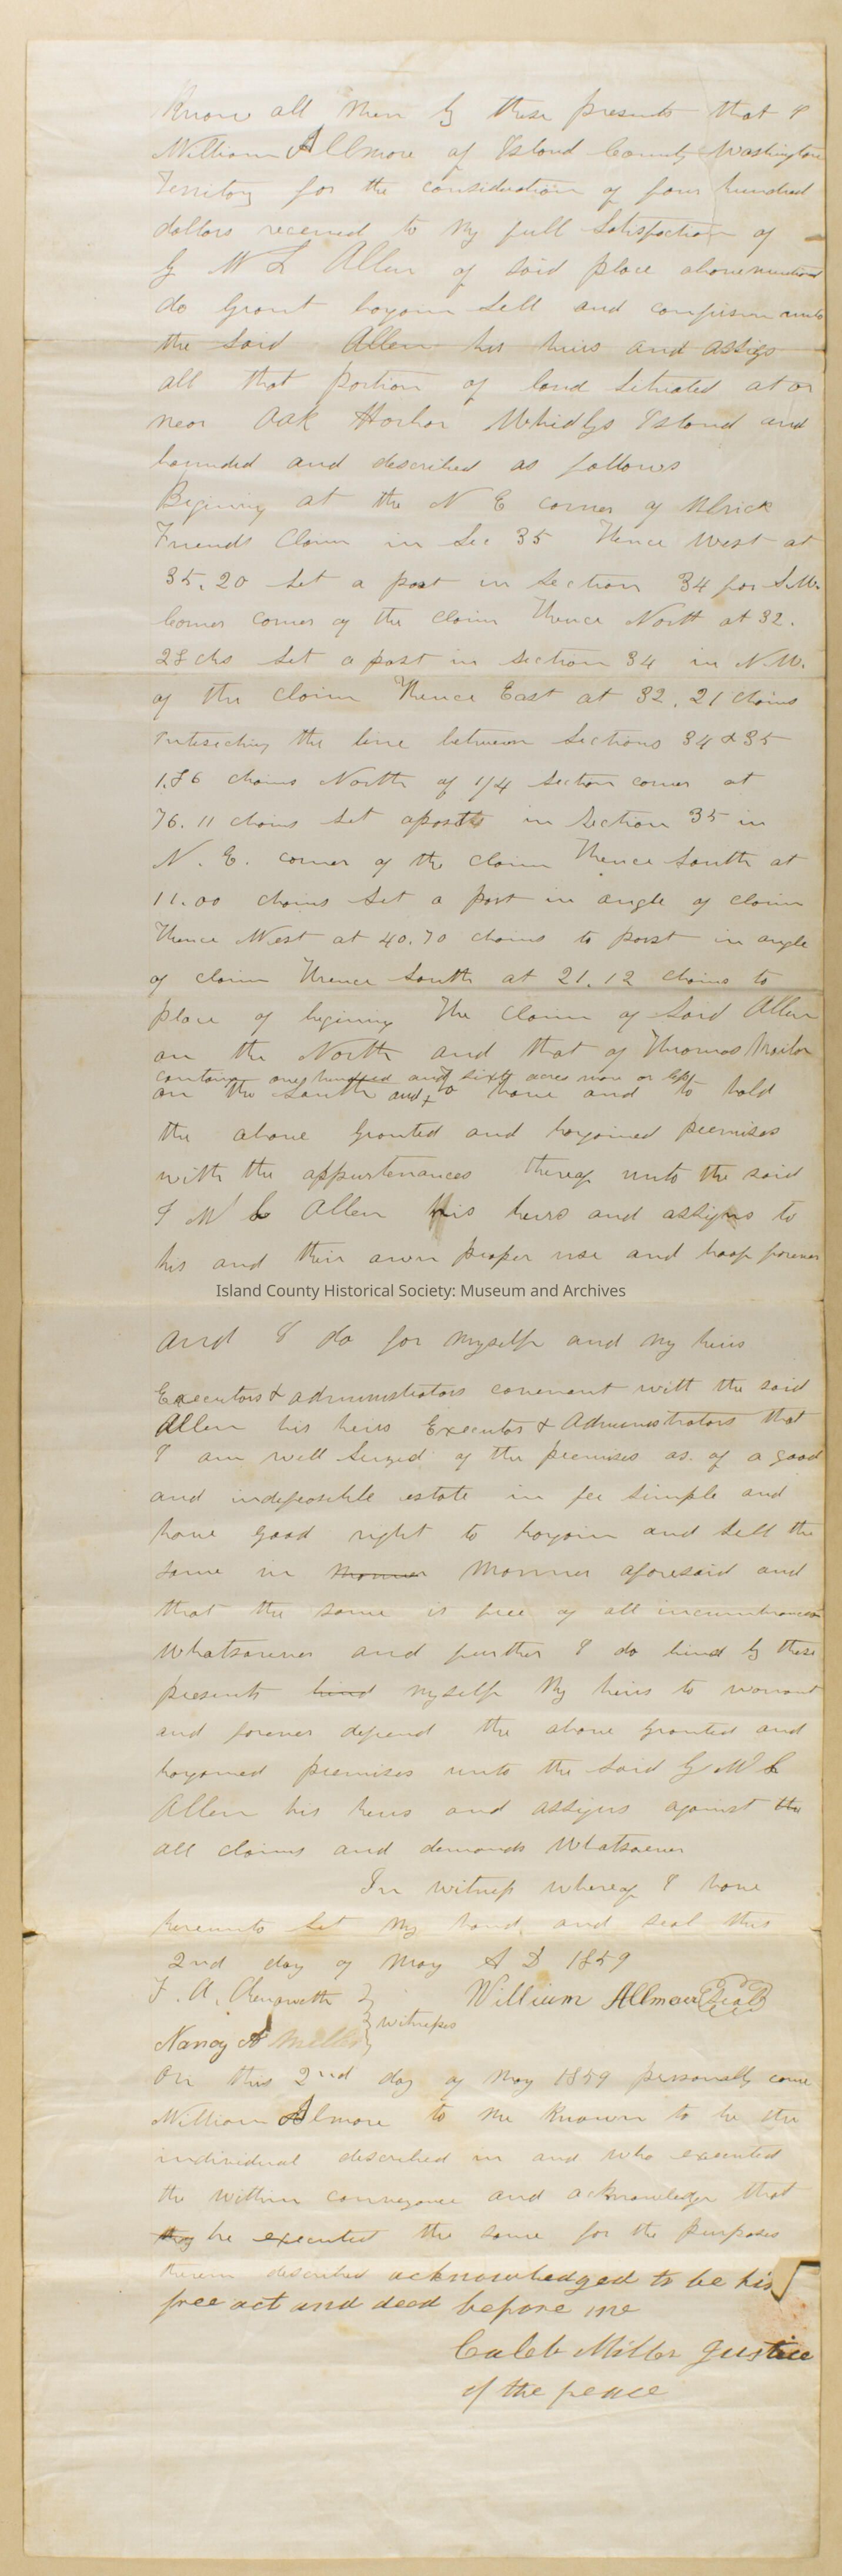 Know all Men by these presents that I
William Allmore of Island County Washington
Territory for the consideration of four hundred
dollars received to my full Satisfaction of
G W L Allen of said place abovementioned
do Grant bargain Sell and confirm unto
the Said Allen his heirs and assigs
all that portion of land Situated at or
near Oak Harbor Whidbys Island and
bounded and described as follows
Begining at the N E corner of Ulrick
Friends Claim in Sec 35 Thence West at
35.20 Set a post in Section 34 for S.W.
Corner corner of the claim Thence North at 32.
28 chs Set a post in Section 34 in N.W.
of the Claim Thence East at 32.21 chains
Intersecting the line between Sections 34 & 35
1.86 chains North of 1/4 Section corner at
76.11 chains Set a post in Section 35 in
N. E. corner of the claim Thence South at
11.00 chains Set a post in angle of claim
Thence West at 40.70 chains to post in angle
of claim Thence South at 21.12 chains to
place of begining The Claim of Said Allen
on the North and that of Thomas
containg one hundred and sixty acres more or less
on the South and to have and to hold
the above Granted and bargained premises
with the appurtenances thereof unto the said
G W L Allen his heirs and assigns to
his and their own proper use and hoof forever
Island County Historical Society: Museum and Archives
And I do for myself and my heirs
Executors & administrators covenant with the said
Allen his heirs Executors & Administrators that
I am well Seized of the premises as of a good
and indefeasible estate in fee simple and
have good right to bargain and Sell the
same in manner manner aforesaid and
that the same is free of all incumbrances
Whatsoever and further I do bind by these
presents bind myself My heirs to warrant
and forever defend the above Granted and
bargained premises unto the said G W L
Allen his heirs and assigns against the
all claims and demands Whatsoever
In witness whereof I have
hereunto Set my hand and seal this
2nd day of May A D 1859
F. A. Chenoweth William Allmore Seal
witnesses
Nancy A Miller
On this 2nd day of May 1859 personally came
William Allmore to me Known to be the
individual described in and who executed
the within conveyance and acknowledge that
they he executed the same for the purposes
therein described acknowhedged to be his
free act and deed before me
Caleb Miller Justice
of the peace